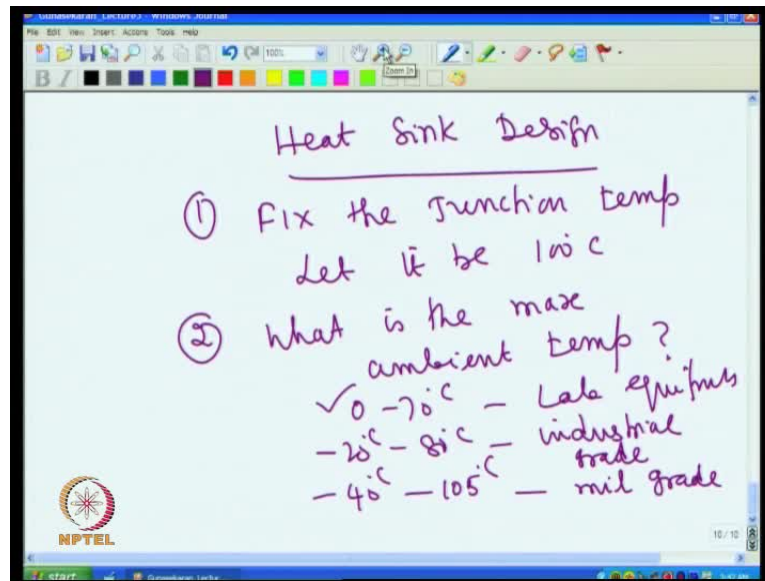 Gunasekaran_Lecture3 - Windows Journal
File Edit View Insert Actions Tools Help
100%
Zoom In
B I
Heat Sink Design
① Fix the Junction temp
Let it be 100°C
② What is the max
ambient temp?
✓0 - 70°C - Lab equipments
-20°C - 80°C - industrial
grade
-40°C - 105°C - mil grade
NPTEL
10 / 10
start